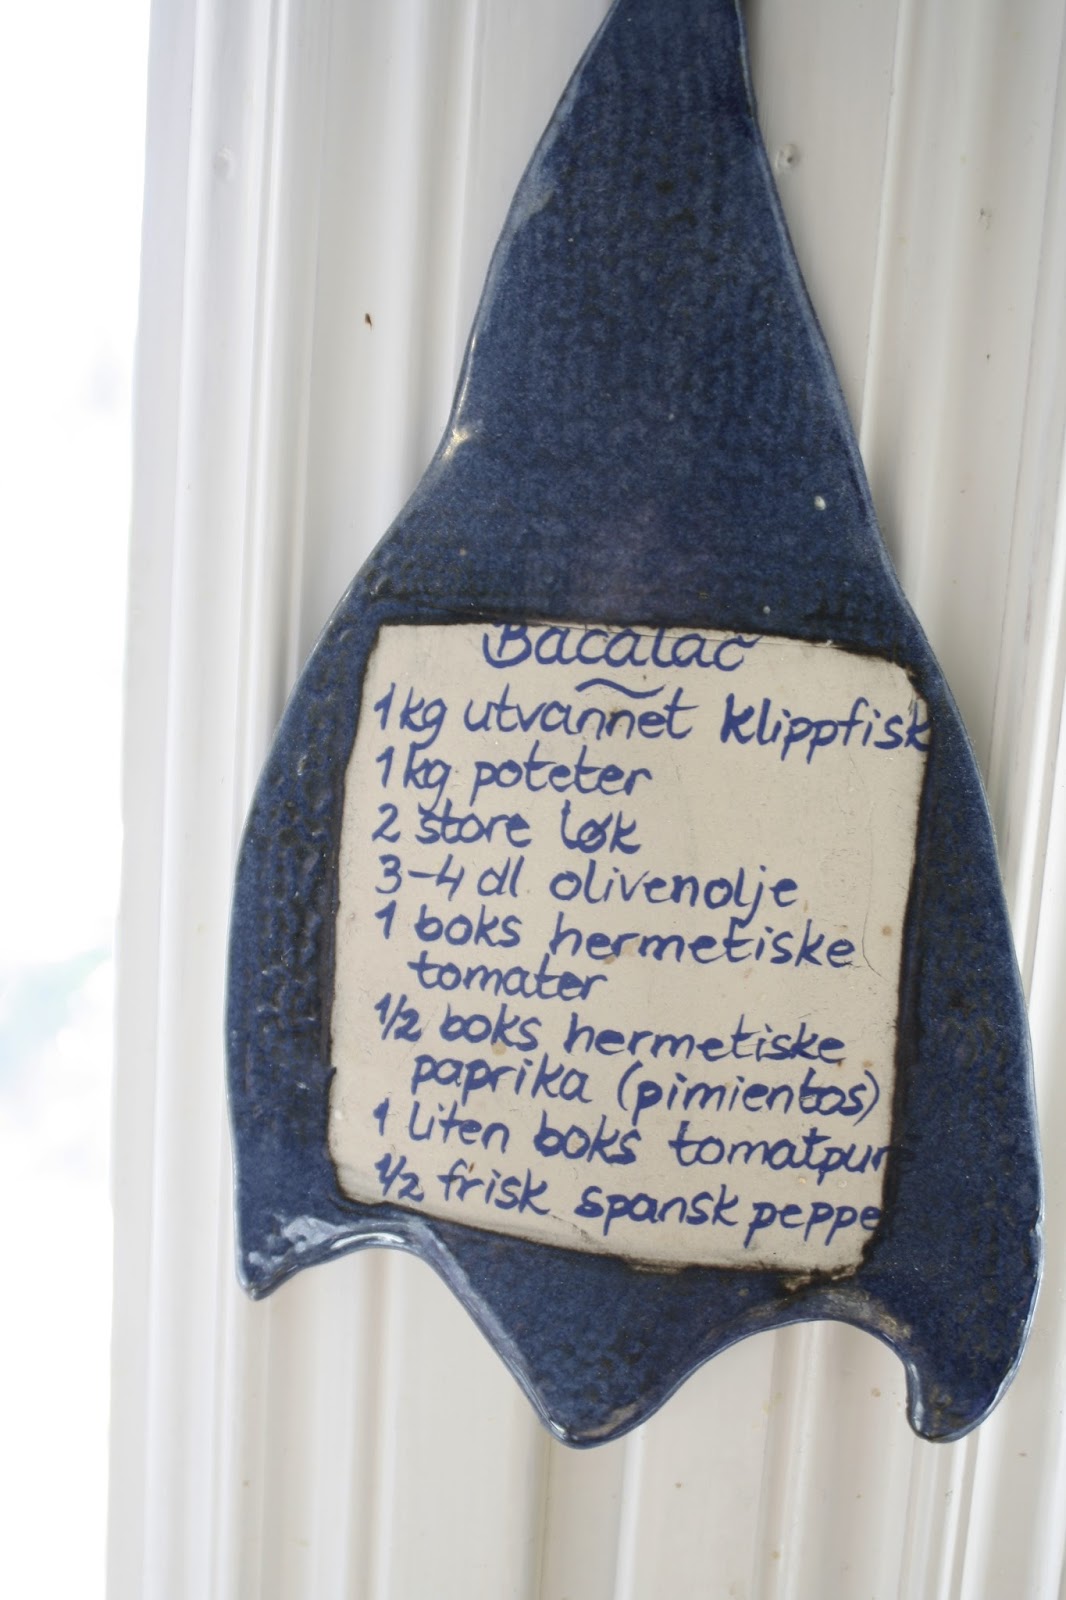 Bacalao
1 kg utvannet klippfisk
1 kg poteter
2 store løk
3-4 dl olivenolje
1 boks hermetiske
tomater
1/2 boks hermetiske
paprika (pimientos)
1 liten boks tomatpur
1/2 frisk spansk peppe